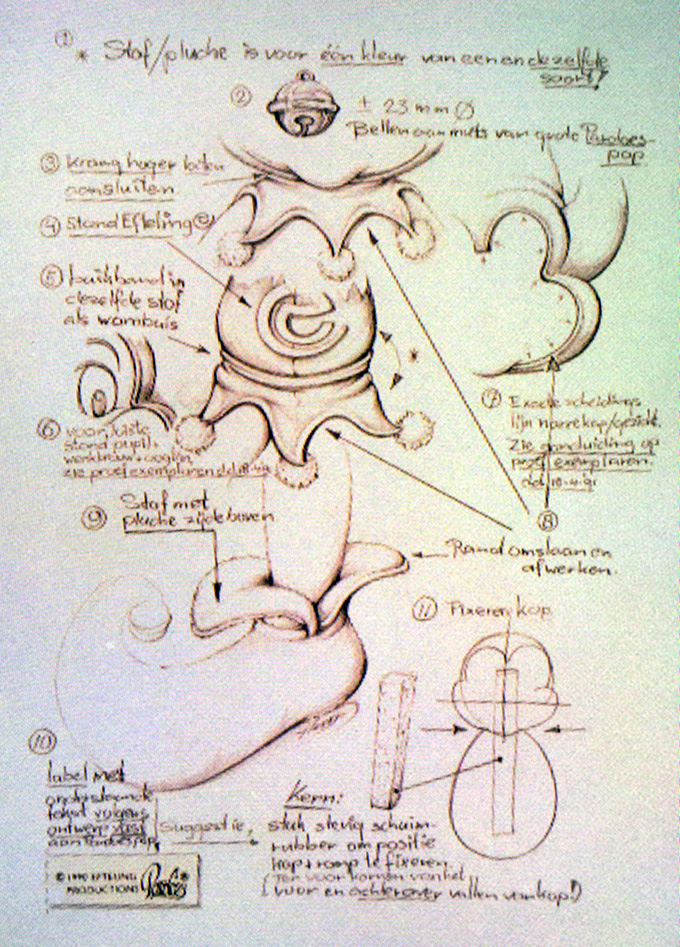 ① * Stof/pluche is voor één kleur van een en dezelfde
soort!
② ± 23 mm Ø
Bellen aan muts van grote Pardoes-
pop
③ Kraag hoger laten
aansluiten.
④ Stand Efteling e
⑤ buikband in
dezelfde stof
als wambuis
*
⑥ voor juiste
stand pupil +
wenkbrauw + ooglijn
zie proefexemplaren dd. 18-4-91
⑦ Exacte scheidings
lijn narrekap/gezicht.
Zie aanduiding op
proefexemplaren.
dd. 18-4-91
⑧
Rand omslaan en
afwerken.
⑨ Stof met
pluche zijde boven
⑩
label met
onderstaande
tekst volgens
ontwerp vast
aan Pardoespop
Suggestie,
© 1990 EFTELING
PRODUCTIONS
Pardoes
⑪ Fixeren kop
Kern:
stuk stevig schuim-
rubber om positie
kop + romp te fixeren.
Ter voorkomen van het
(voor en achterover vallen van kop!)